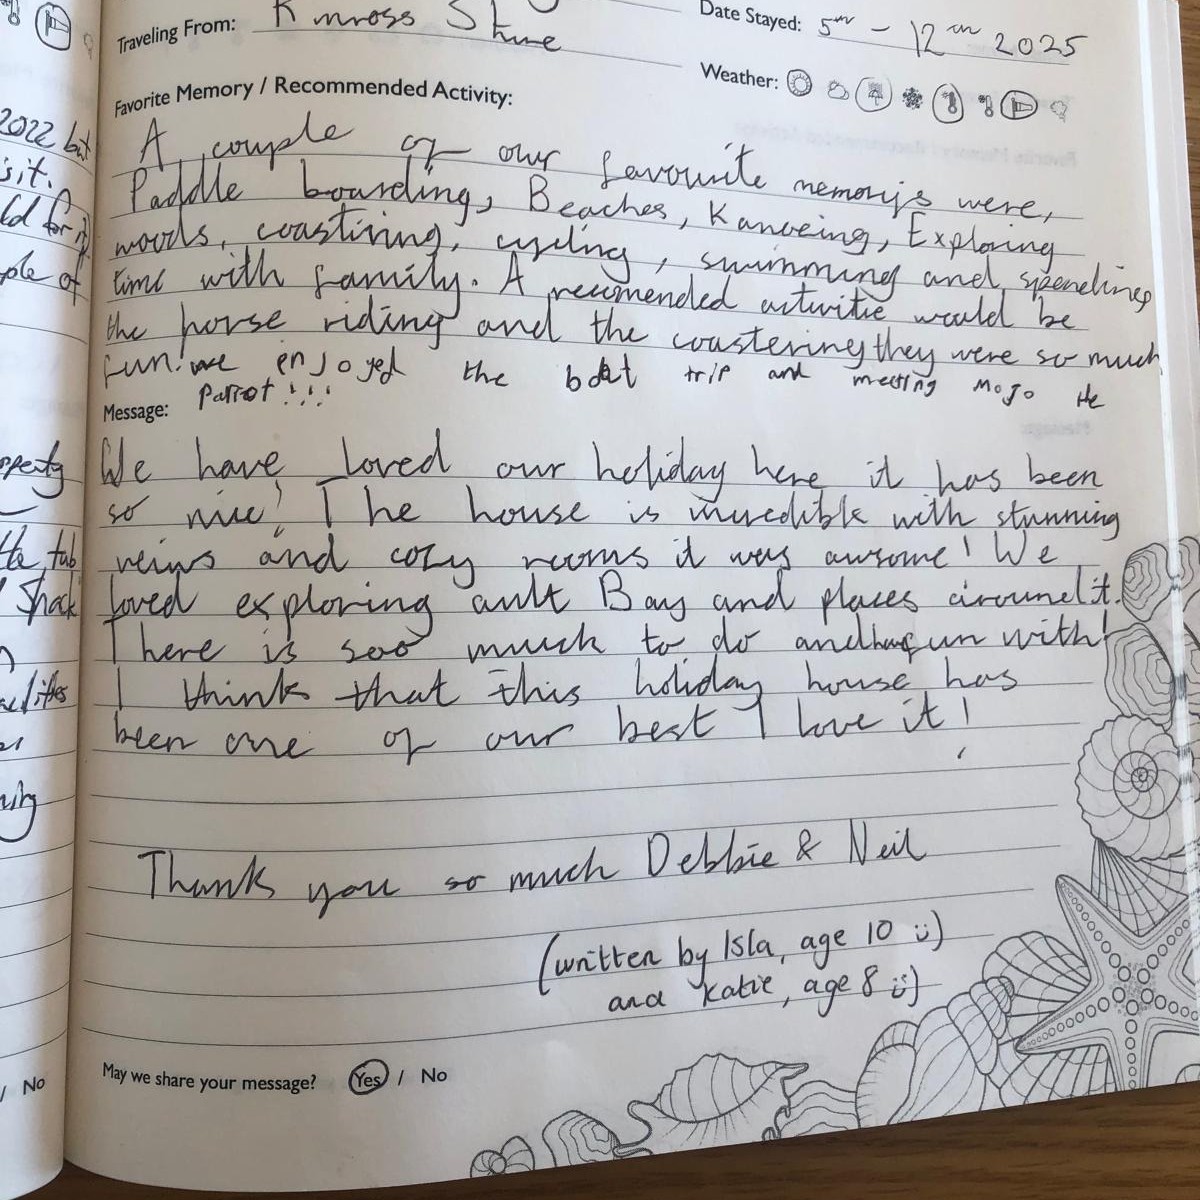 Traveling From: Kinross Shire
Date Stayed: 5th - 12th 2025
Weather:
Favorite Memory / Recommended Activity:
A couple of our favourite memorys were,
Paddle boarding, Beaches, Kanoeing, Exploring
woods, coastiring, cycling, swimming and spending
time with family. A recomended activitie would be
the horse riding and the coastering they were so much
fun! we enjoyed the boat trip and meeting Mojo the
Parrot!!!!
Message:
We have loved our holiday here it has been
so nice! The house is incredible with stunning
veiws and cozy rooms it was awsome! We
loved exploring ault Bay and places around it.
There is soo much to do and have fun with!
I think that this holiday house has
been one of our best I love it!
Thank you so much Debbie & Neil
(written by Isla, age 10 :)
and Katie, age 8 :))
May we share your message? Yes / No
2022 but
sit.
ple of
the tub
Shack
/ No